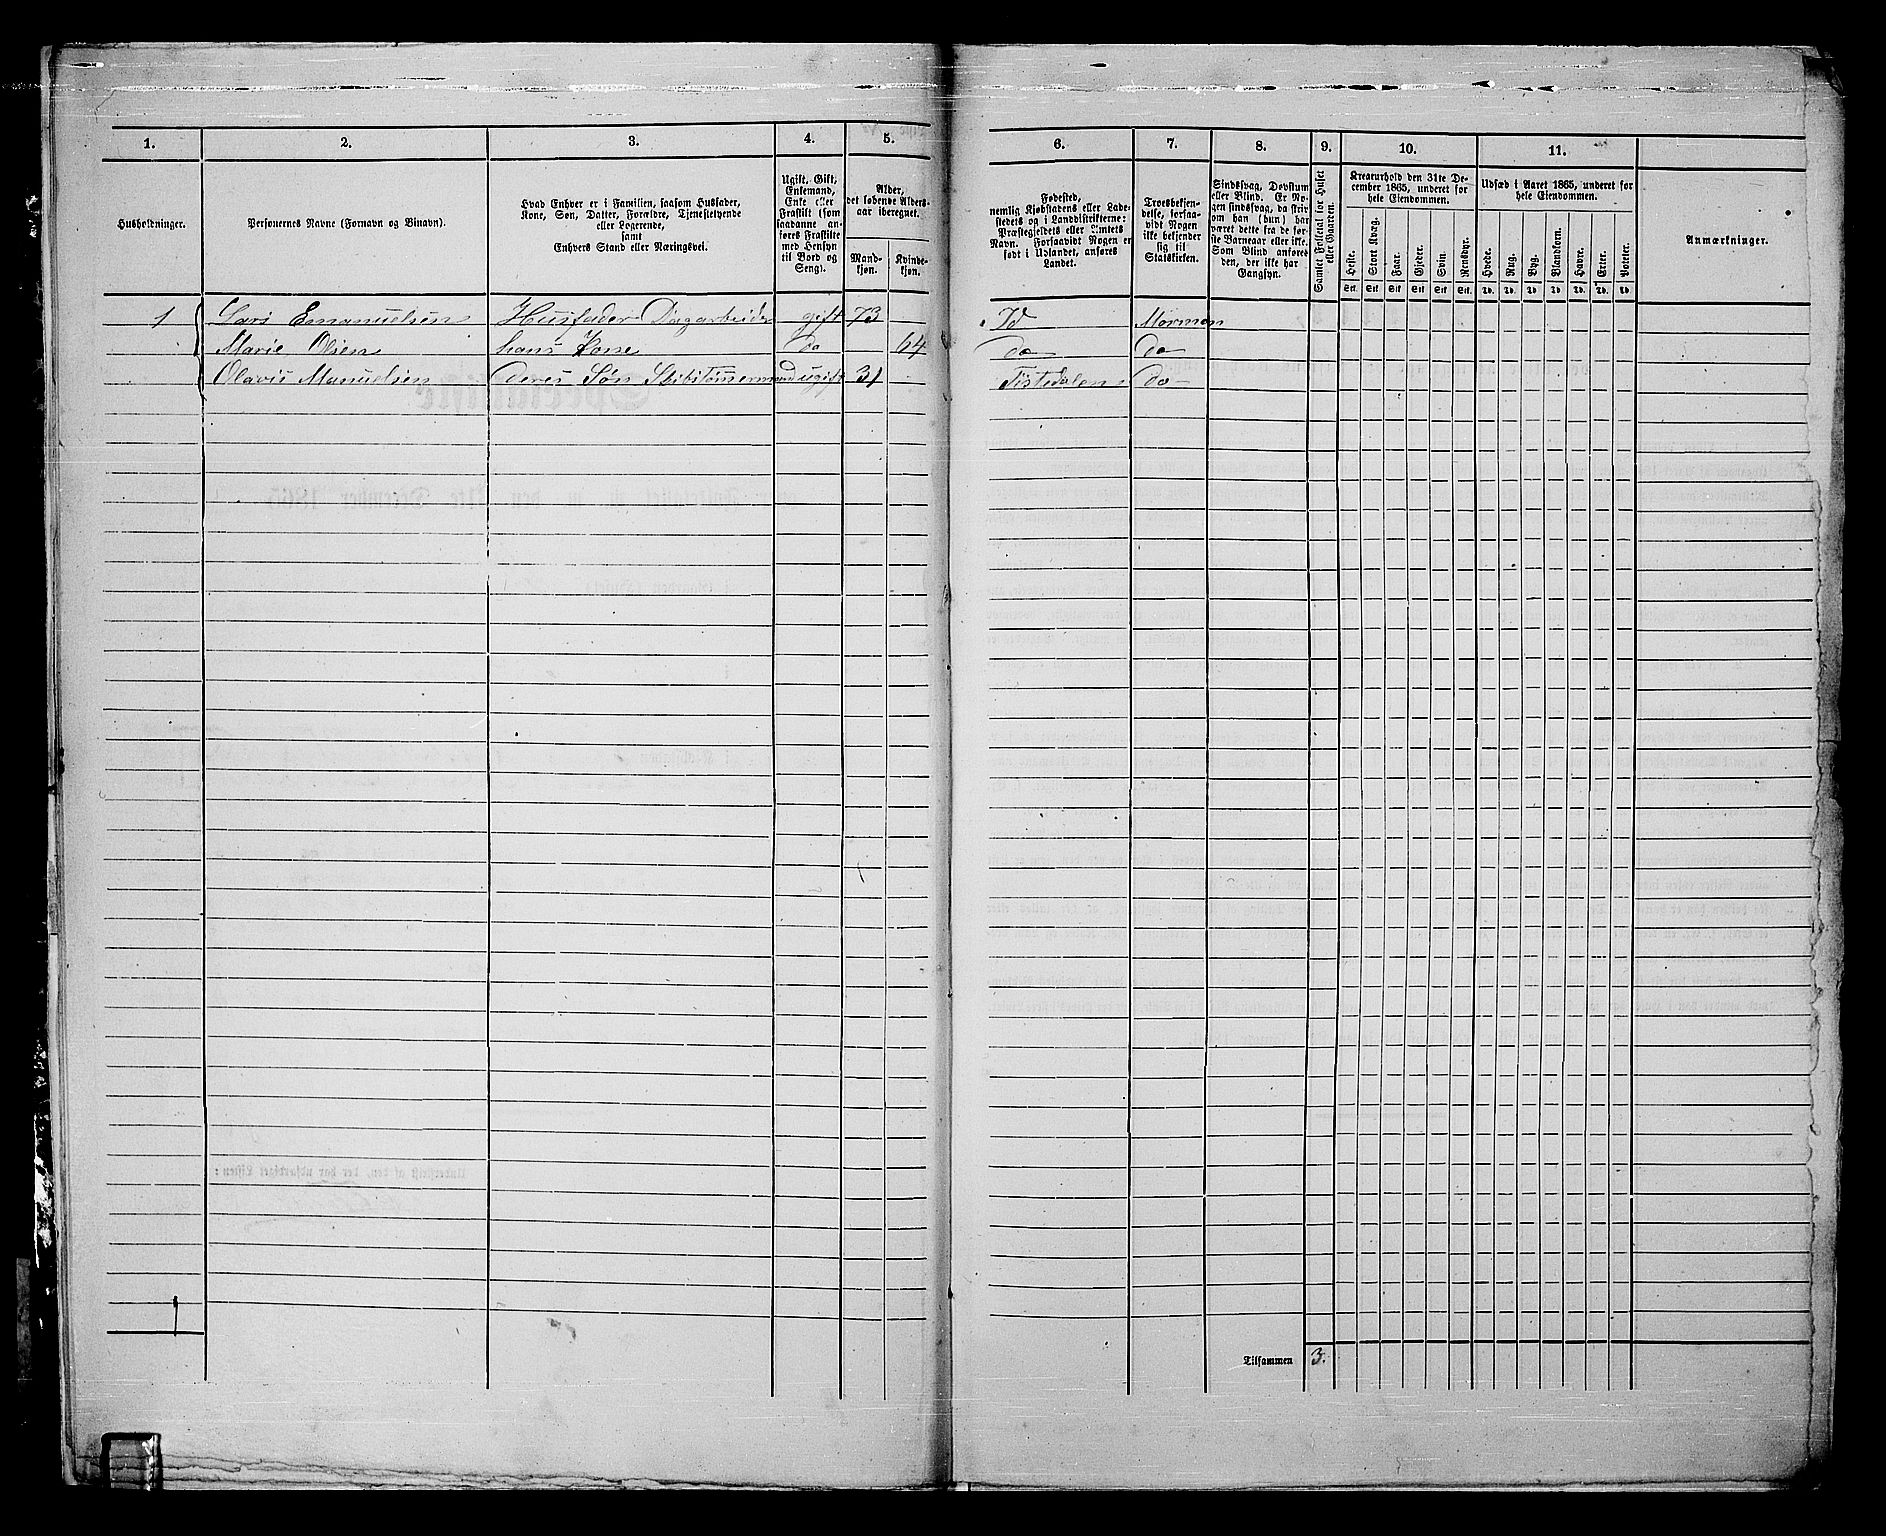 1. 2. 3. 4. 5. 6. 7. 8. 9. 10. 11.
Husholdninger.
Personernes Navne (Fornavn og Binavn).
Hvad Enhver er i Familien, saasom Husfader,
Kone, Søn, Datter, Forældre, Tjenestetyende
eller Logerende,
samt
Enhvers Stand eller Næringsvei.
Ugift, Gift,
Enkemand,
Enke eller
Fraskilt (som
saadanne an-
føres Fraskilte
med Hensyn
til Bord og
Seng).
Alder,
det løbende Alders-
aar iberegnet.
Mand-
kjøn.
Kvinde-
kjøn.
Fødested,
nemlig Kjøbstadens eller Lade-
stedets og i Landdistrikterne:
Præstegjeldets eller Amtets
Navn. Forsaavidt Nogen er
født i Udlandet, anføres
Landet.
Troesbekjen-
delse, forsaa-
vidt Nogen
ikke bekjender
sig til
Statskirken.
Sindssvag, Døvstum
eller Blind. Er No-
gen sindssvag, da skriv
om han (hun) har
været dette fra de før-
ste Barneaar eller ikke.
Som Blind anføres
den, der ikke har
Gangsyn.
Samlet Folketal for Huset
eller Gaarden.
Kreaturhold den 31te De-
cember 1865, underet for
hele Eiendommen.
Heste. Stort Kvæg. Faar. Gjeder. Svin. Rensdyr.
Stk. Stk. Stk. Stk. Stk. Stk.
Udsæd i Aaret 1865, underet for
hele Eiendommen.
Hvede. Rug. Byg. Blandkorn. Havre. Erter. Poteter.
Td. Td. Td. Td. Td. Td. Td.
Anmærkninger.
1 Lars Emanuelsen Husfader Dagarbeider gift 73 Id Mormon
Marie Olsen hans Kone do 64 do do
Olavis Manuelsen deres Søn Skibstømmermand ugift 31 Tistedalen do
Tilsammen 3.